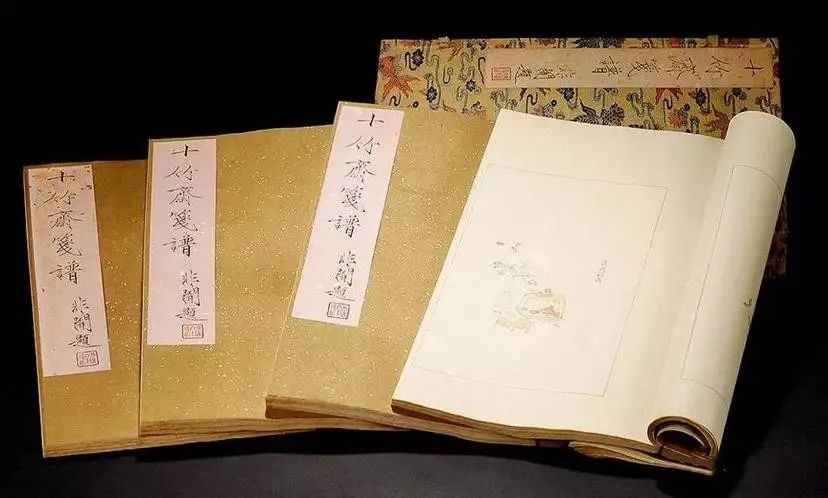 十竹斋笺譜 非闇題
十竹齋笺譜 非闇題
十竹齋笺譜 非闇題
十竹齋箋譜 非闇題